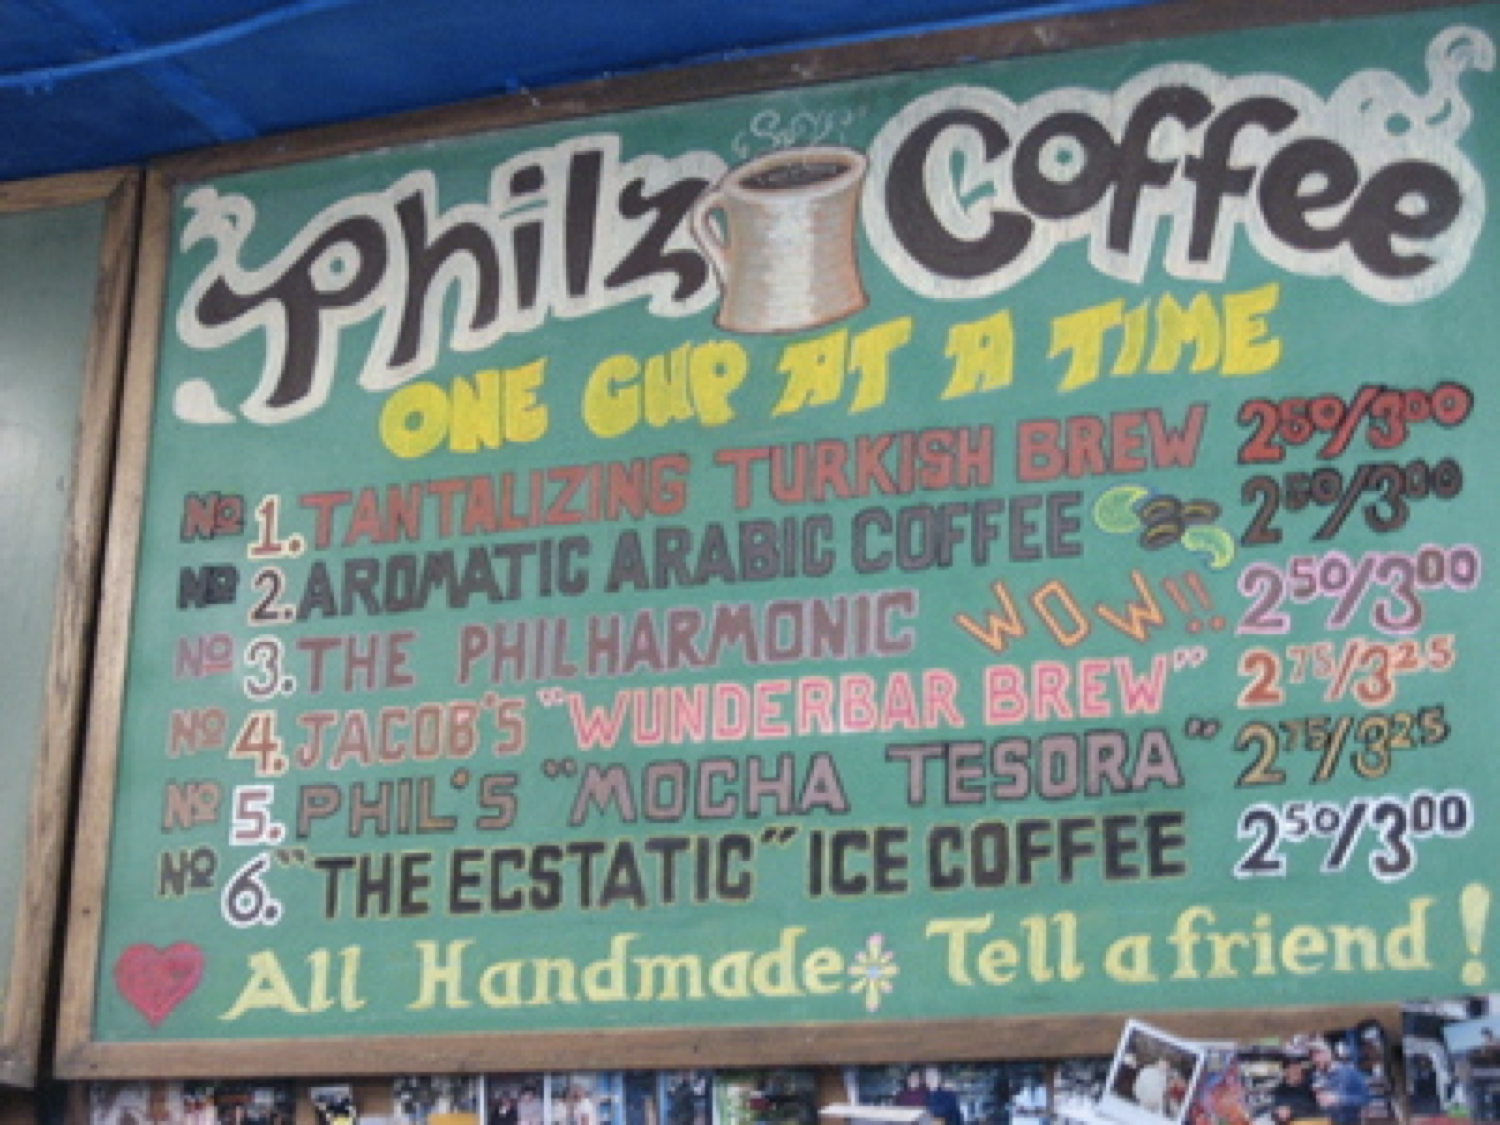 Philz Coffee
ONE CUP AT A TIME
No 1. TANTALIZING TURKISH BREW 250/300
No 2. AROMATIC ARABIC COFFEE 250/300
No 3. THE PHILHARMONIC WOW!! 250/300
No 4. JACOB'S "WUNDERBAR BREW" 275/325
No 5. PHIL'S "MOCHA TESORA" 275/325
No 6. "THE ECSTATIC" ICE COFFEE 250/300
All Handmade Tell a friend!